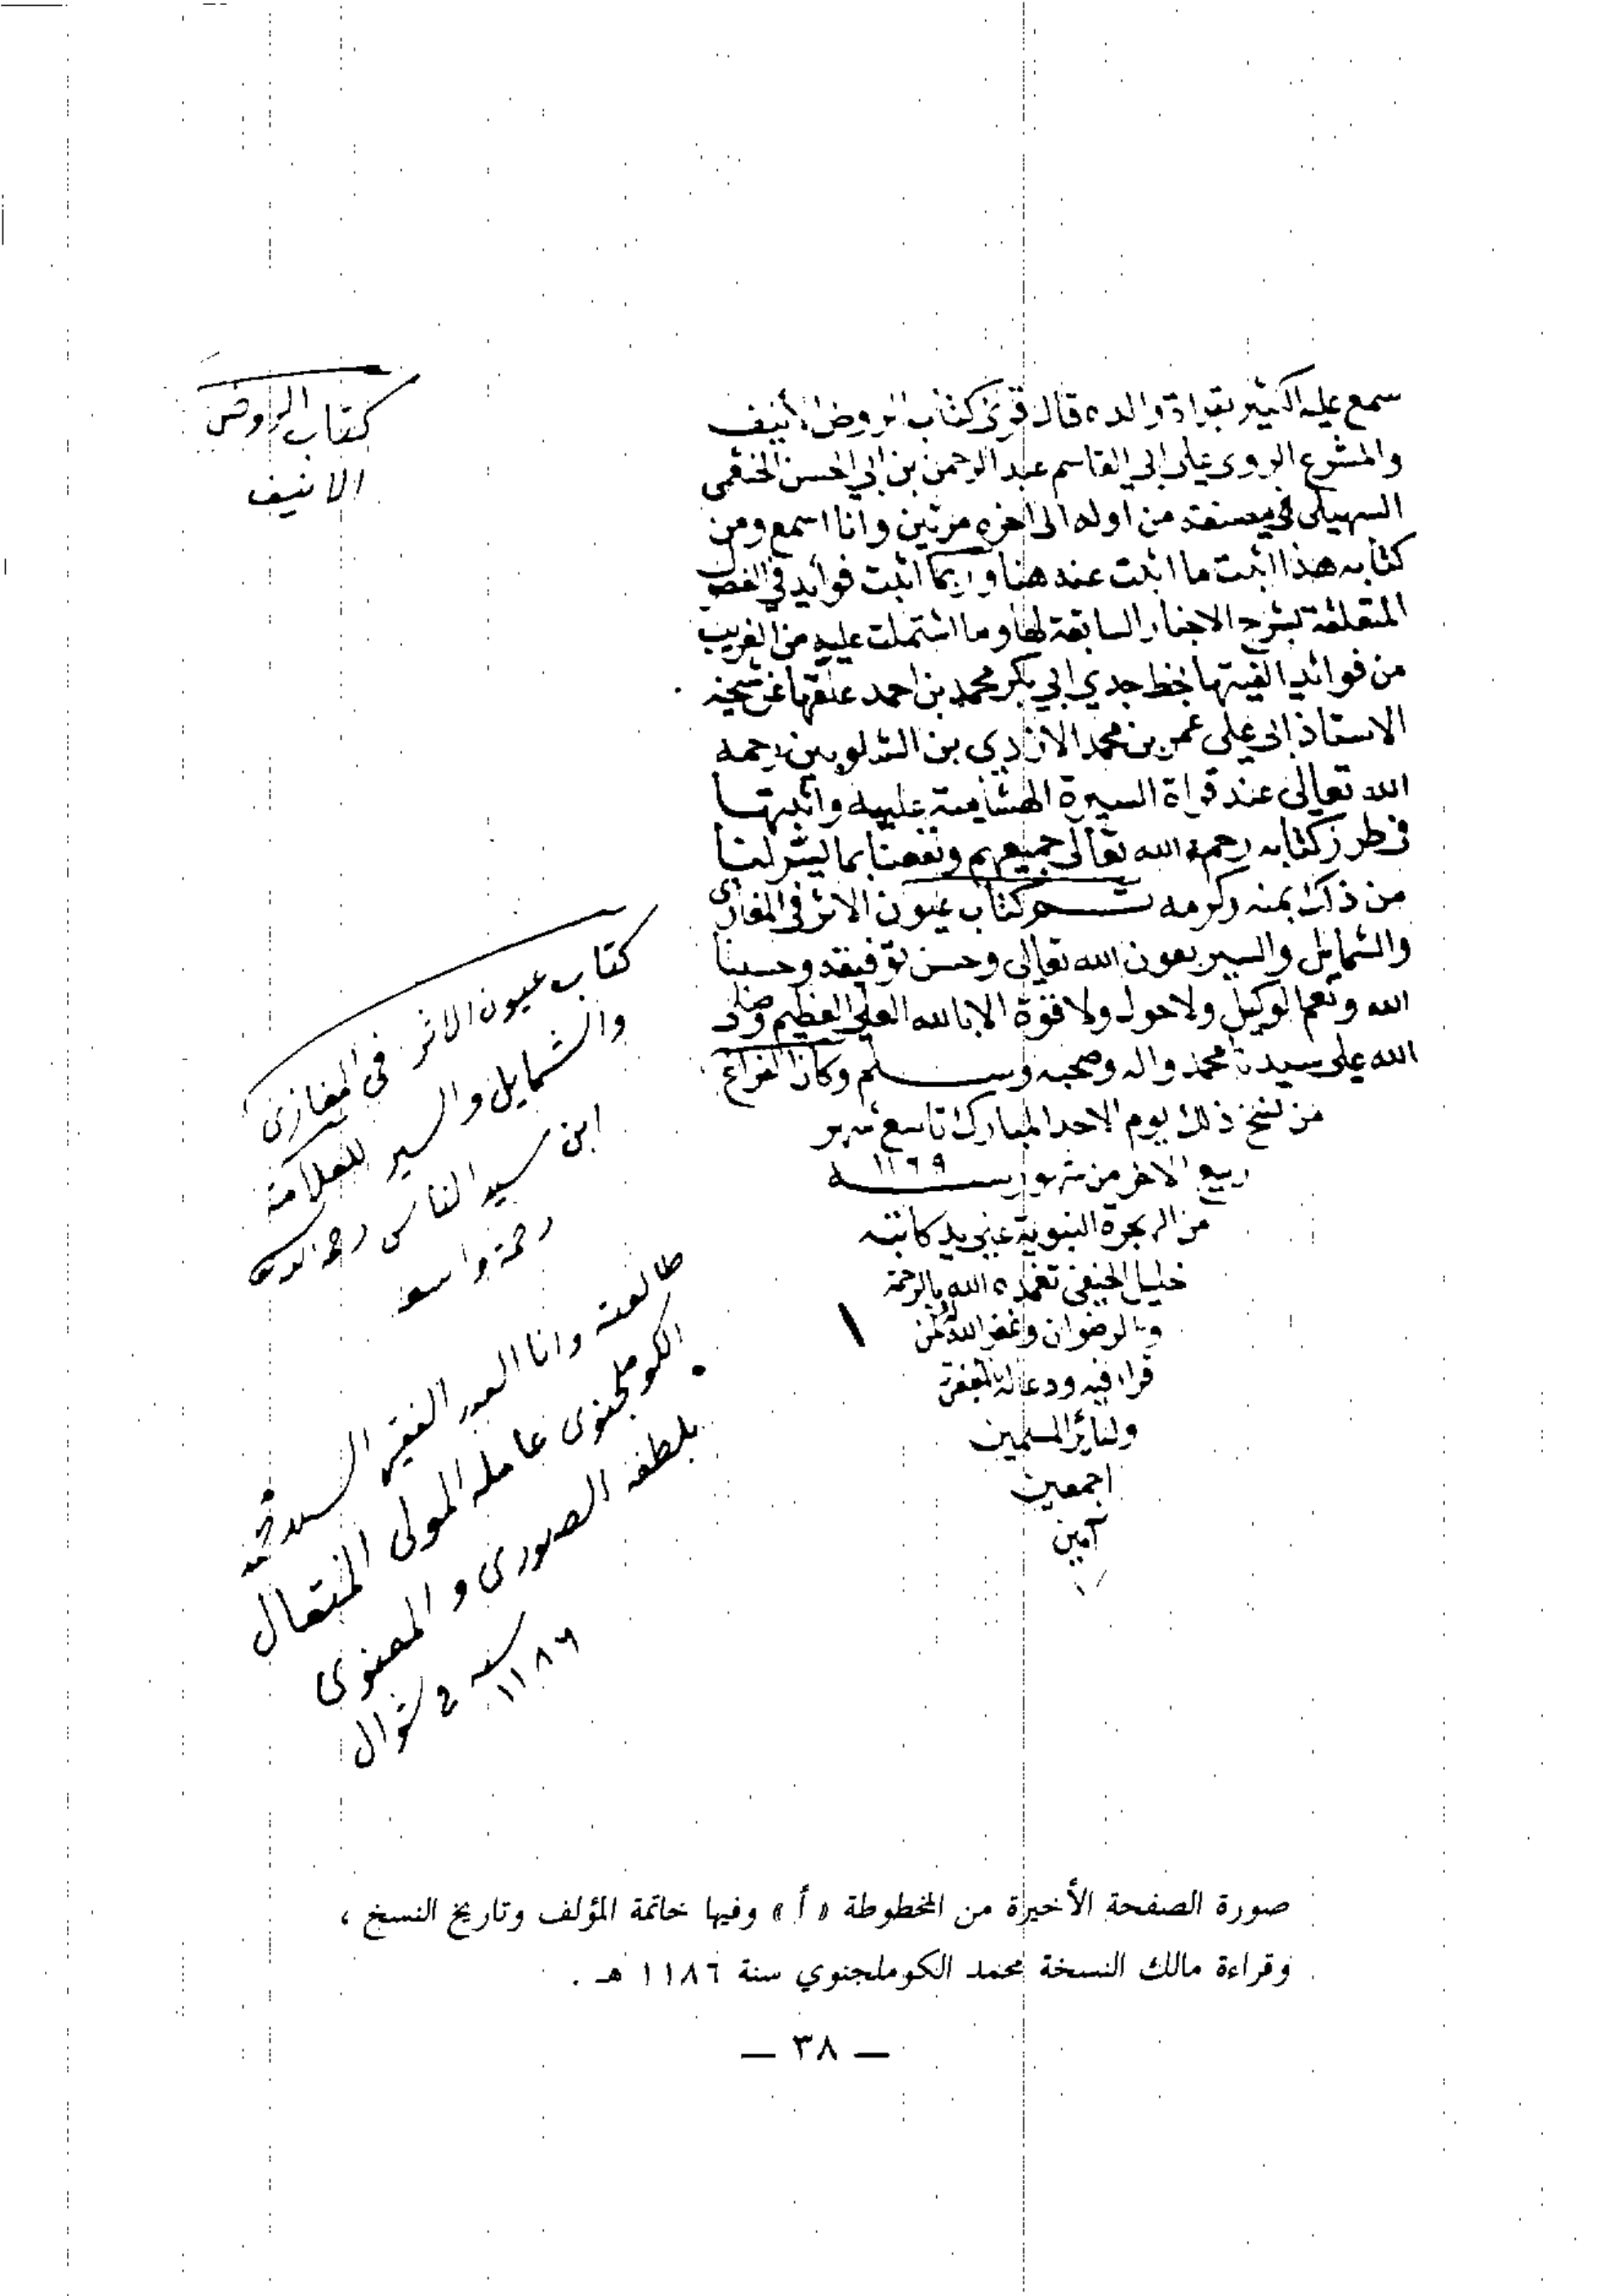 سمع عليه الكثير بقراءة والده قال قرئ كتاب الروض الأنيف
والمشرع الروى على ابي القاسم عبد الرحمن بن ابي الحسن الخثعمى
السهيلى مصنفه من اوله الى اخره مرتين وانا اسمع ومن
كتابه هذا اثبت ما اثبت عنه هنا وربما اثبت فوايد في الفصول
المتعلقة بشرح الاخبار السابقة لها وما اشتملت عليه من الغريب
من فوائد الفيتها بخط جدي ابي بكر محمد بن احمد علقها عن شيخه
الاستاذ ابى على عمر بن محمد الازدي بن الشلوبين رحمه
الله تعالى عند قراة السيرة الهشامية عليه واثبتها
في طرز كتابه رحمه الله تعالى جميعهم ونفعنا بما يسر لنا
من ذلك بمنه وكرمه تـــم كتاب عيون الاثر في المغازى
والشمايل والسير بعون الله تعالى وحسن توفيقه وحسبنا
الله ونعم الوكيل ولا حول ولا قوة الا بالله العلى العظيم وصلى
الله على سيدنا محمد واله وصحبه وسلم وكان الفراغ
من نسخ ذلك يوم الاحد المبارك تاسع شهر
ربيع الاخر من شهور سنة ١١٦٩
من الهجرة النبوية على يد كاتبه
خليل الحنفى تغمده الله بالرحمة
والرضوان وغفر الله لمن
قراء فيه ودعا له بالمغفرة
ولسائر المسلمين
اجمعين
آمين
كتاب الروض
الانيف
كتاب عيون الاثر فى المغازى
والشمايل والسير للعلامة
ابن سيد الناس رحمه الله
رحمة واسعة
طالعته وانا العبد الفقير السيد محمد
الكوملجنوى عامله المولى المتعال
بلطفه الصورى والمعنوى
سنه ١١٨٦ في شوال
صورة الصفحة الأخيرة من المخطوطة « أ » وفيها خاتمة المؤلف وتاريخ النسخ ،
وقراءة مالك النسخة محمد الكوملجنوي سنة ١١٨٦ هـ .
— ٣٨ —